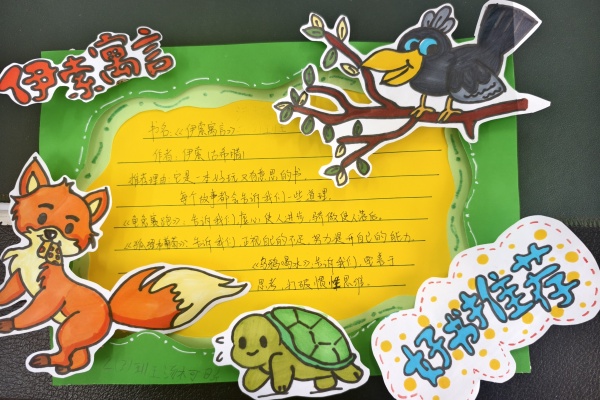 伊索寓言
书名:《伊索寓言》
作者:伊索(古希腊)
推荐理由:它是一本好玩又有意思的书
每个故事都会告诉我们一些道理。
《龟兔赛跑》告诉我们虚心使人进步,骄傲使人落后。
告诉我们正视自己的不足,努力提升自己的能力。
《乌鸦喝水》告诉我们,要善于
思考,打破惯性思维。
好书推荐